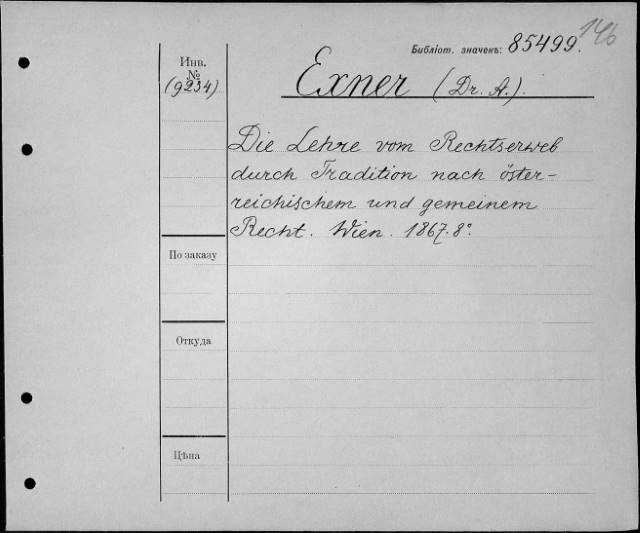 146
Библіот. значекъ: 85499.
Инв.
№
(9234)
Exner (Dr. A.).
Die Lehre vom Rechtserweb
durch Tradition nach öster-
reichischem und gemeinem
Recht. Wien. 1867. 8°.
По заказу
Откуда
Цѣна